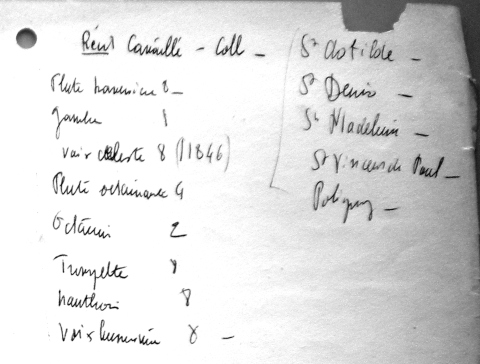 Récit Cavaillé - Coll -
Flute harmonique 8 -
Gambe 8
Voix céleste 8 (1846)
Flute octaviante 4
Octavin 2
Trompette 8
hautbois 8
Voix humaine 8 -
St Clotilde -
St Denis -
St Madeleine -
St Vincent de Paul -
Poligny -